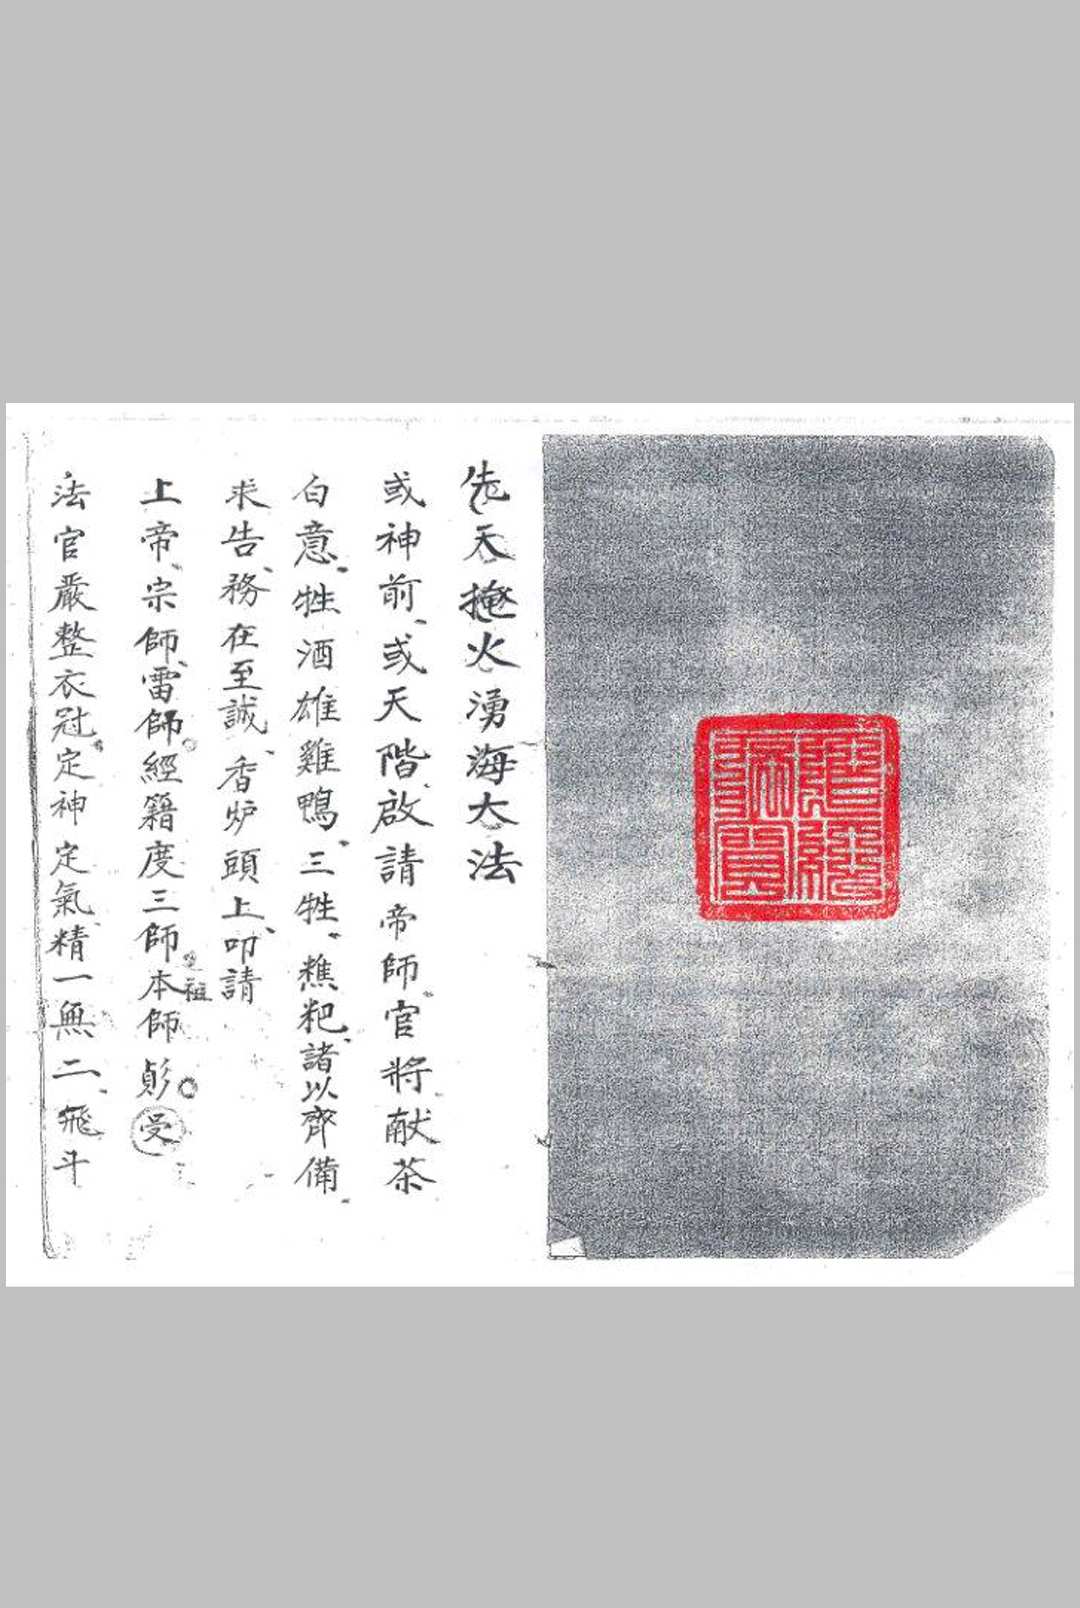 先天掩火湧海大法
或神前或天階啟請帝師官將献茶
白意牲酒雄雞鴨三牲樵粑諸以齊備
求告務在至誠香炉頭上叩請
上帝宗師雷師經籍度三師本師
祖
受
法官嚴整衣冠定神定氣精一無二飛斗